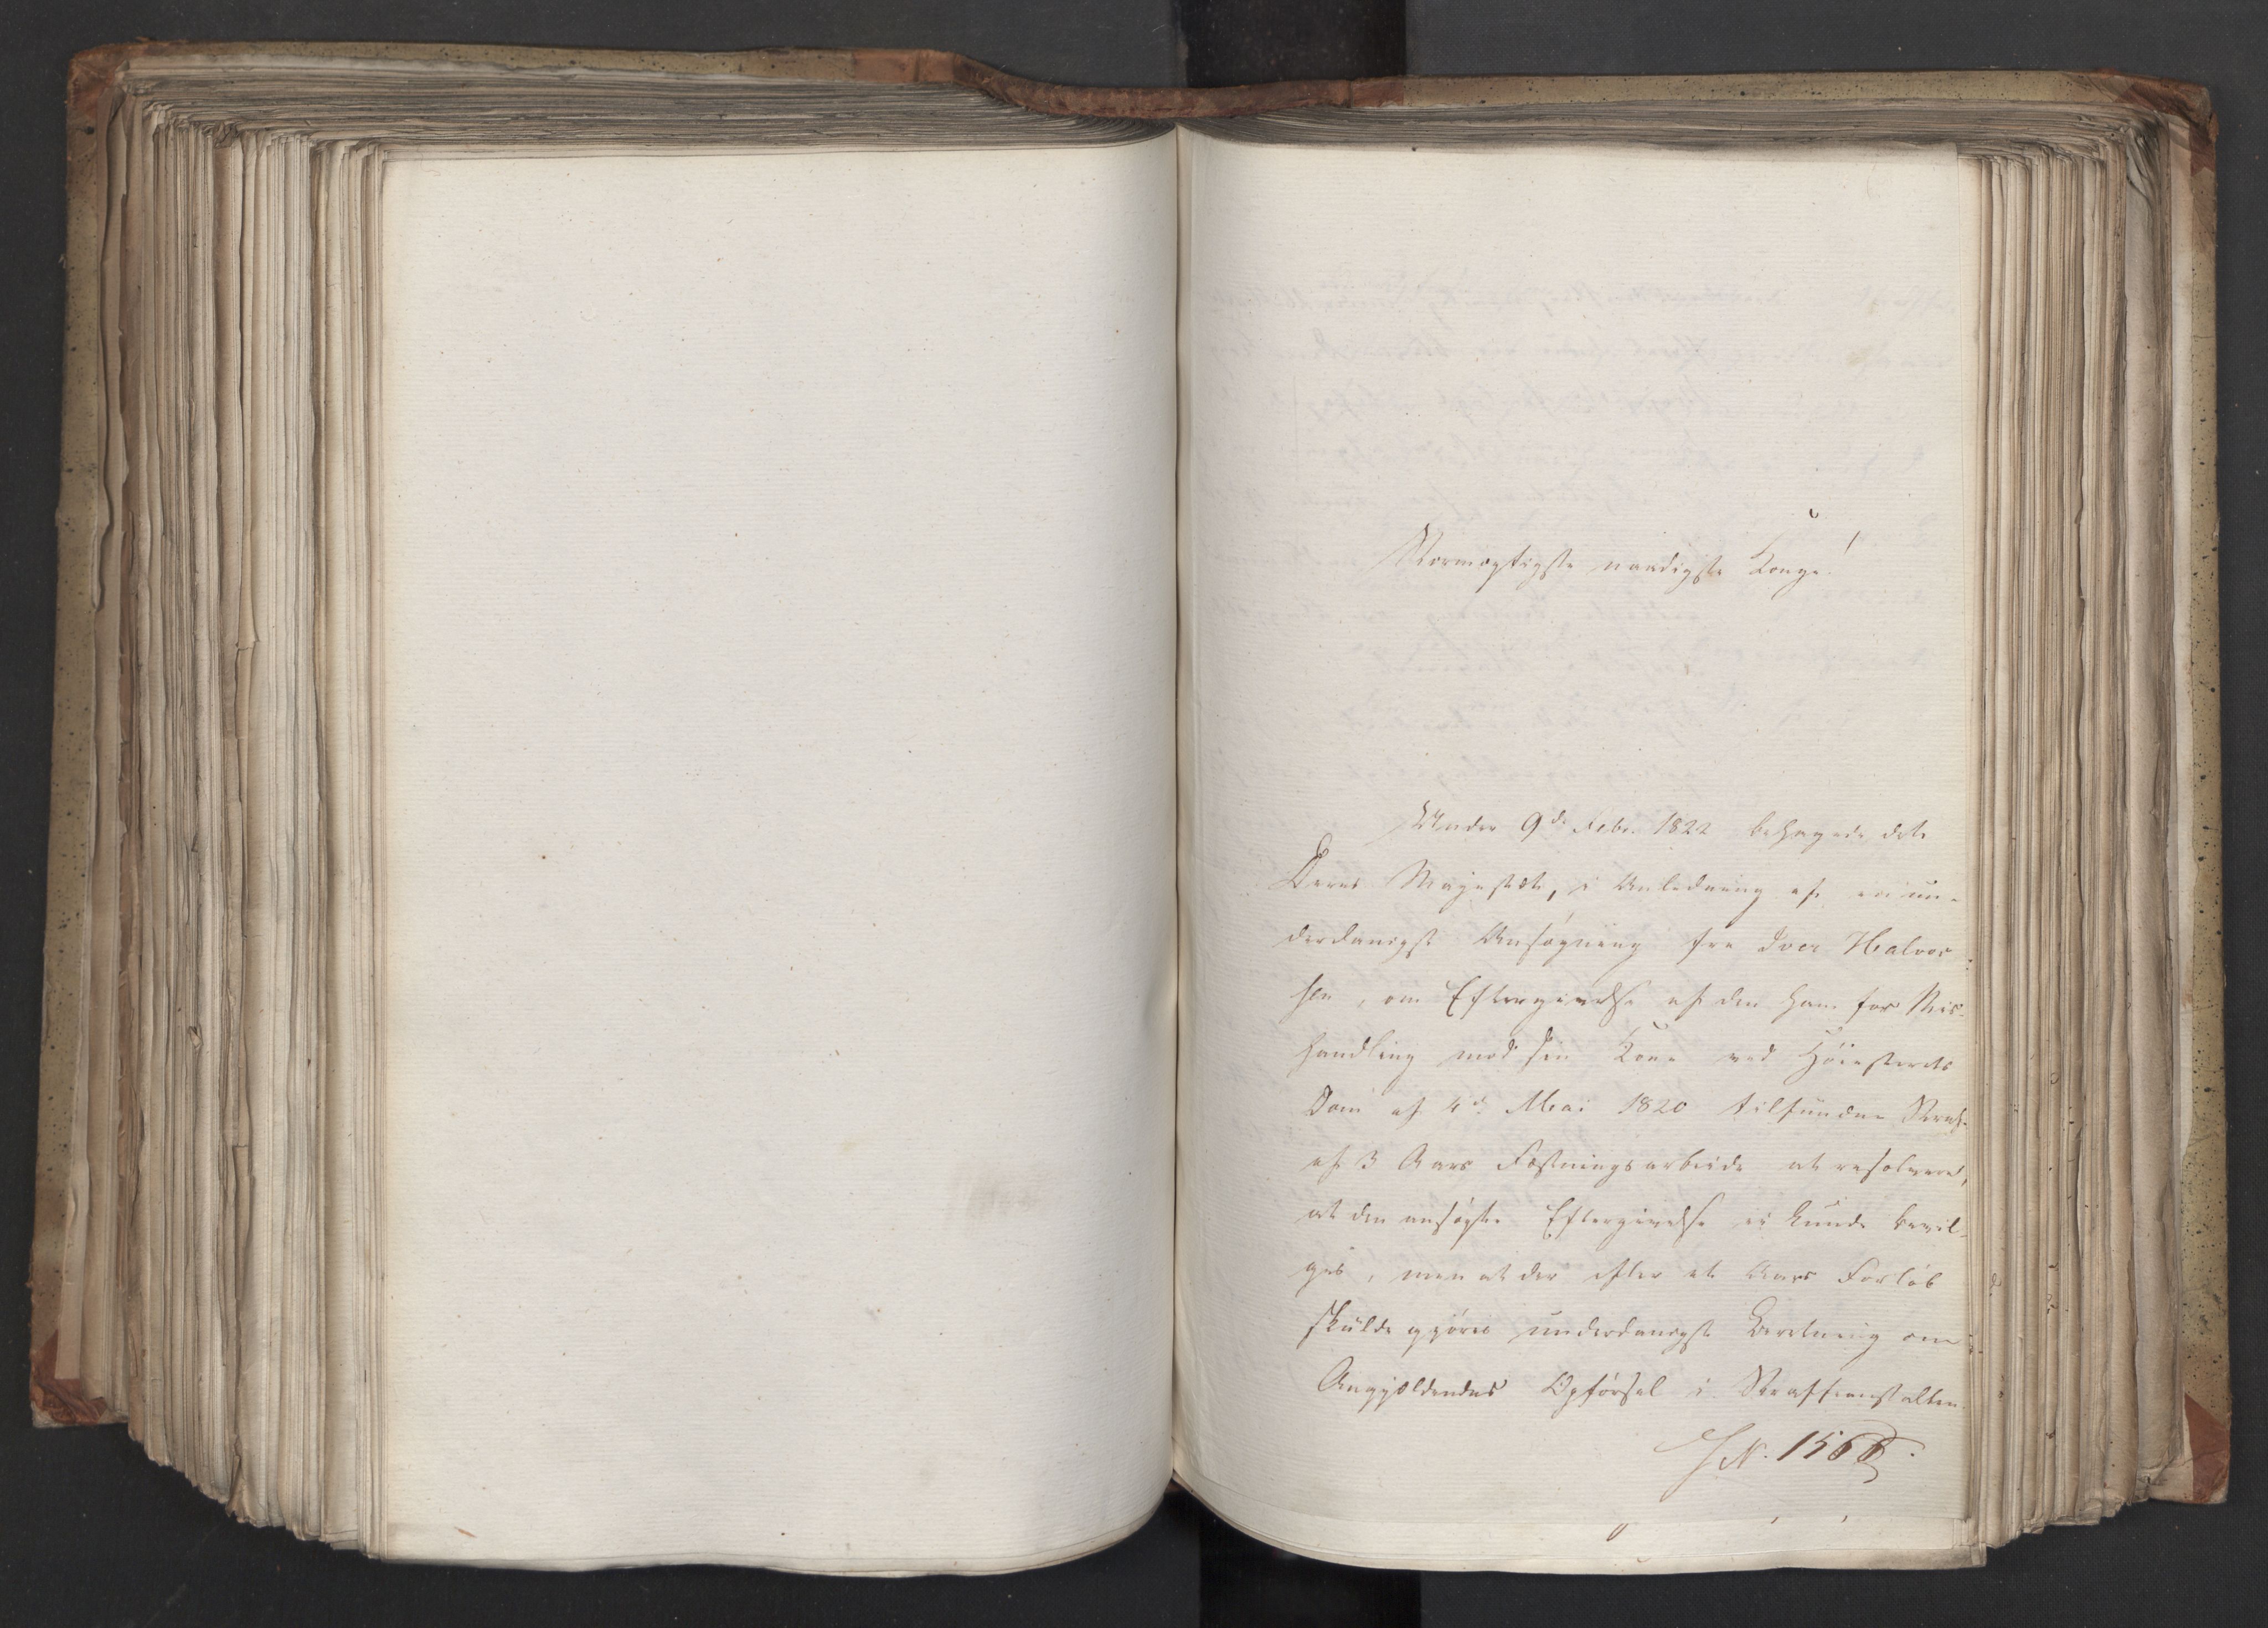 Stormægtigste naadigste Konge!
Under 9de Febr. 1822 behagede det
Deres Majestæt, i Anledning af en un-
derdanigst Ansøgning fra Iver Halvor-
sen, om Eftergivelse af den ham for Mis-
handling mod sin Kone ved Høiesterets
Dom af 4de Mai 1820 tilfundne Straf
af 3 Aars Fæstningsarbeide at resolvere,
at den ansøgte Eftergivelse ei kunde bevil-
ges, men at der efter et Aars Forløb
skulde gjøres underdanigst Beretning om
Angjældendes Opførsel i Straffeanstalten.
J N. 1566.